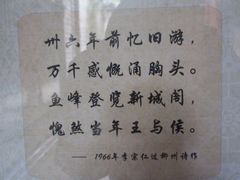 卅六年前忆旧游，
万千感慨涌胸头。
鱼峰登览新城阁，
愧煞当年王与侯。
—— 1966年李宗仁过柳州诗作